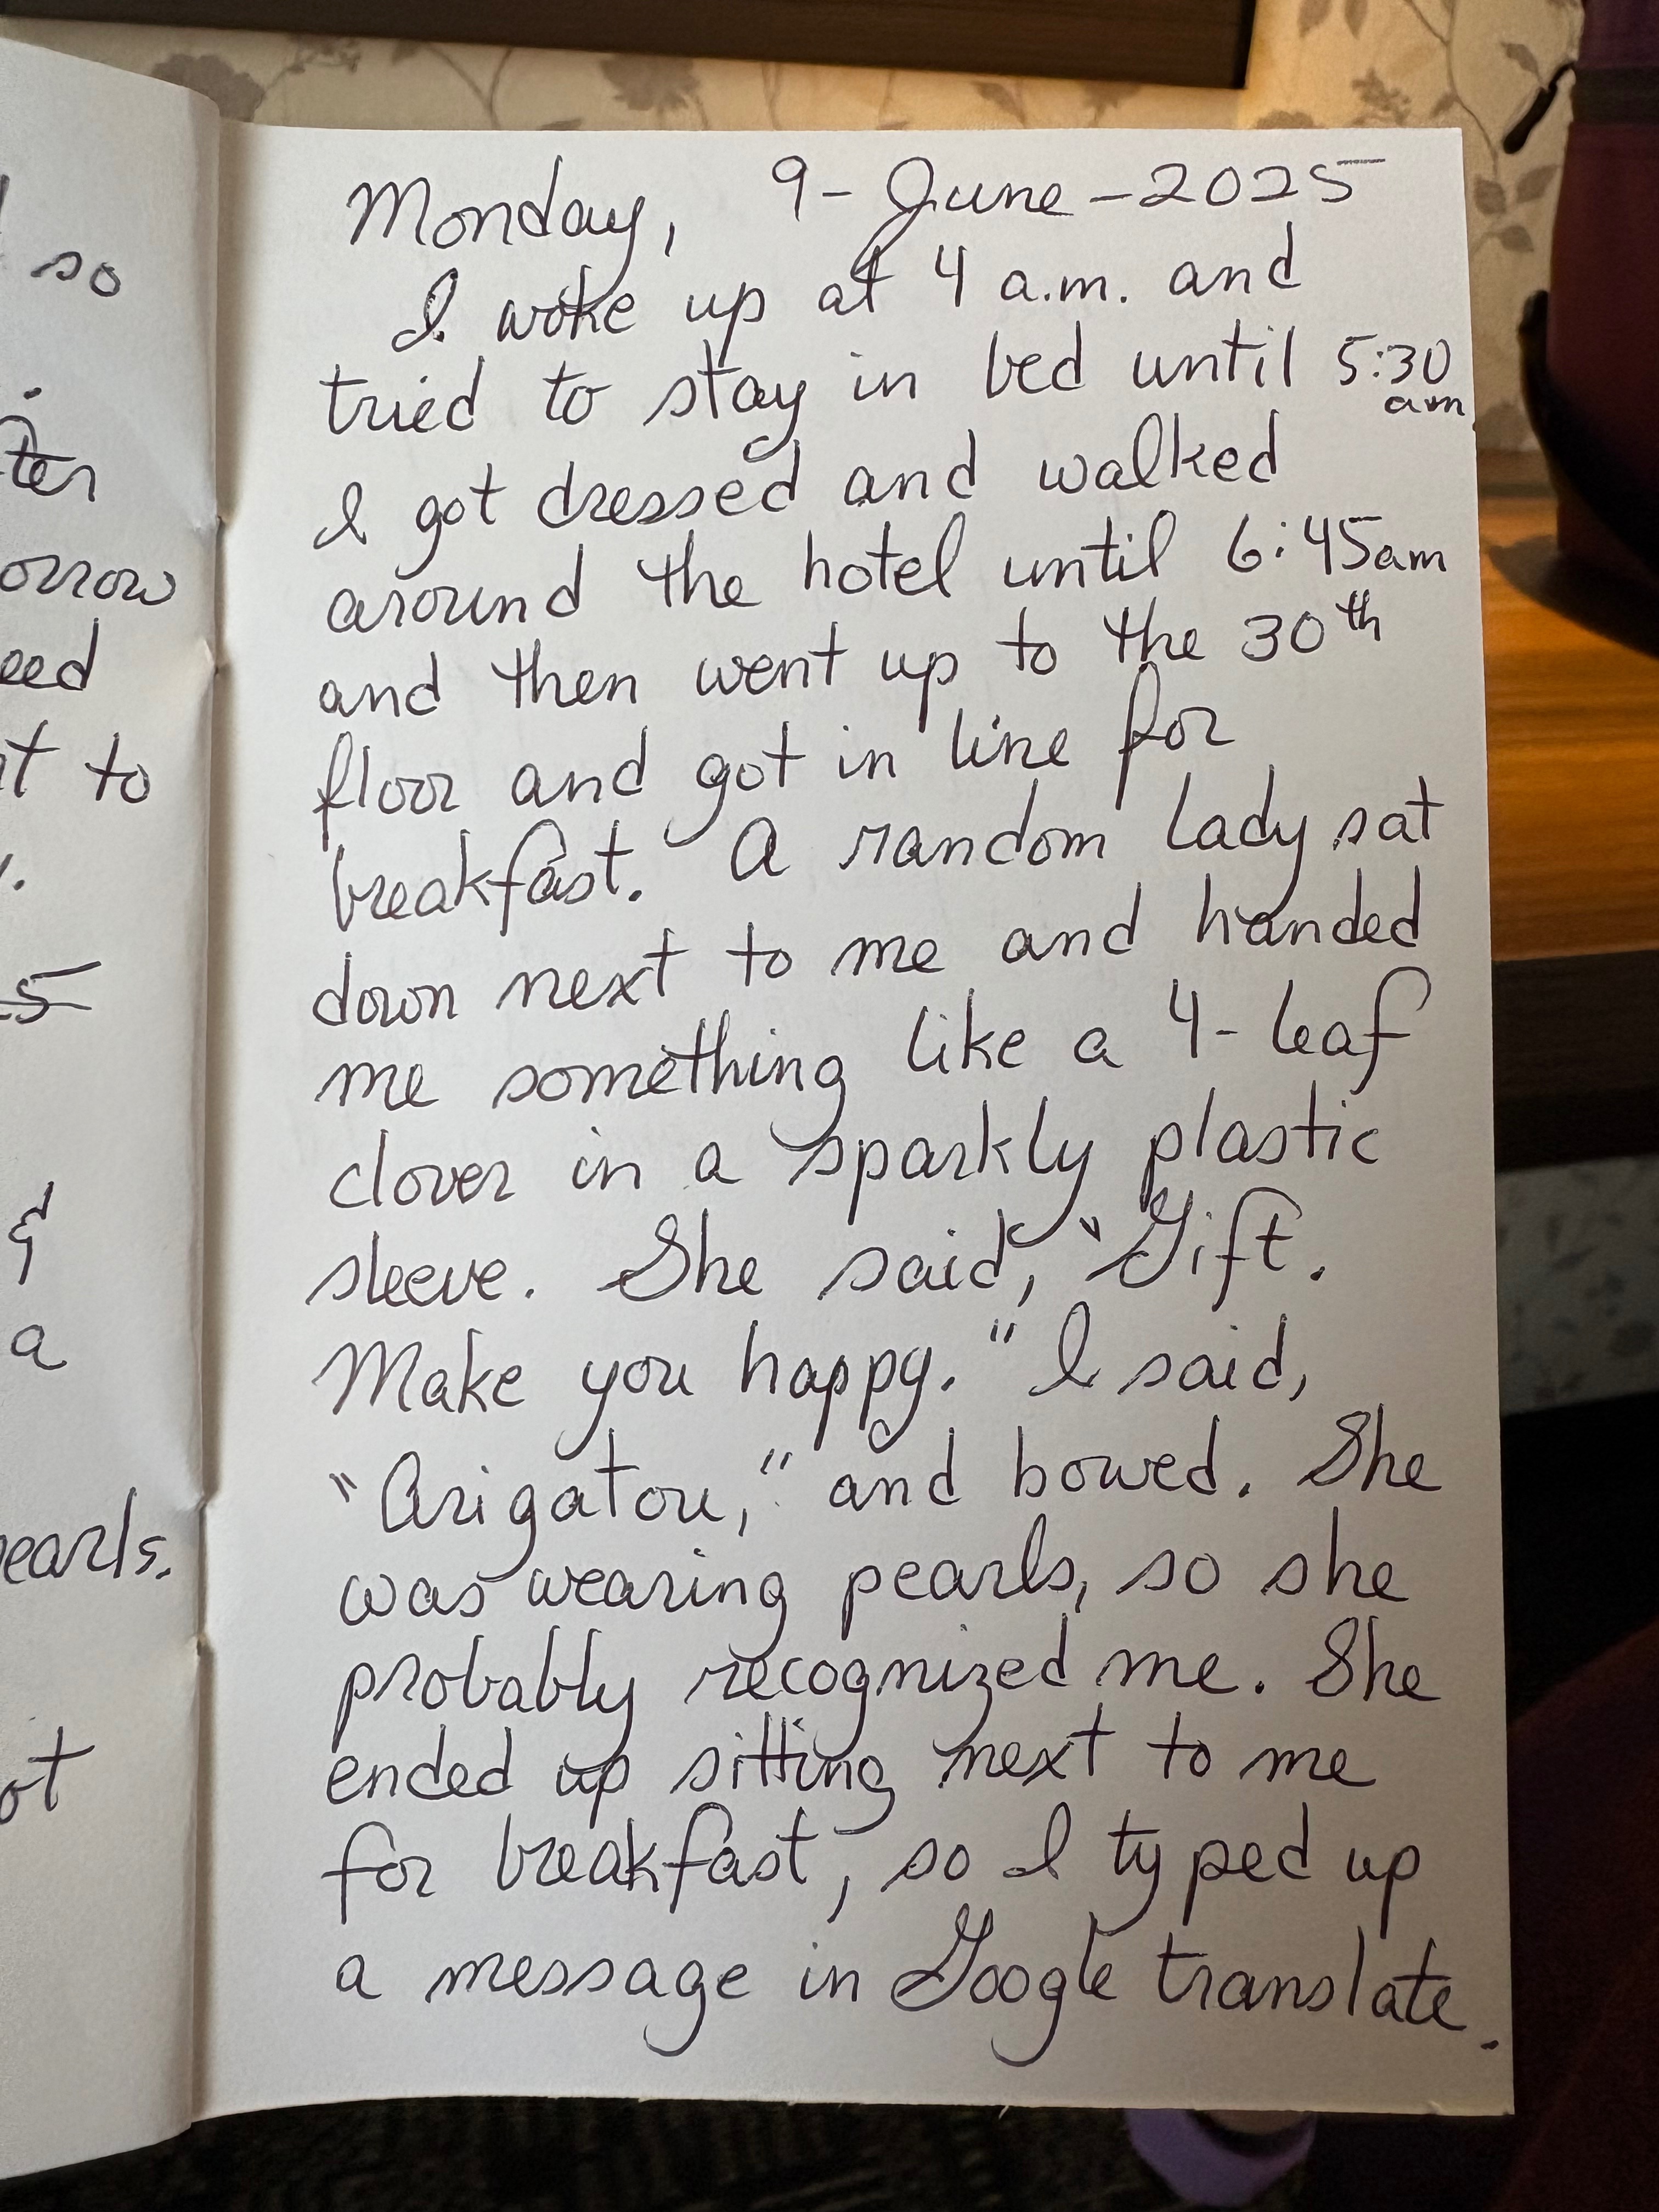 so
orrow
eed
to
&
a
earls.
ot
Monday, 9-June-2025
I woke up at 4 a.m. and
tried to stay in bed until 5:30
am
I got dressed and walked
around the hotel until 6:45am
and then went up to the 30th
floor and got in line for
breakfast. A random lady sat
down next to me and handed
me something like a 4-leaf
clover in a sparkly plastic
sleeve. She said, "Gift.
Make you happy." I said,
"Arigatou," and bowed. She
was wearing pearls, so she
probably recognized me. She
ended up sitting next to me
for breakfast, so I typed up
a message in Google translate.